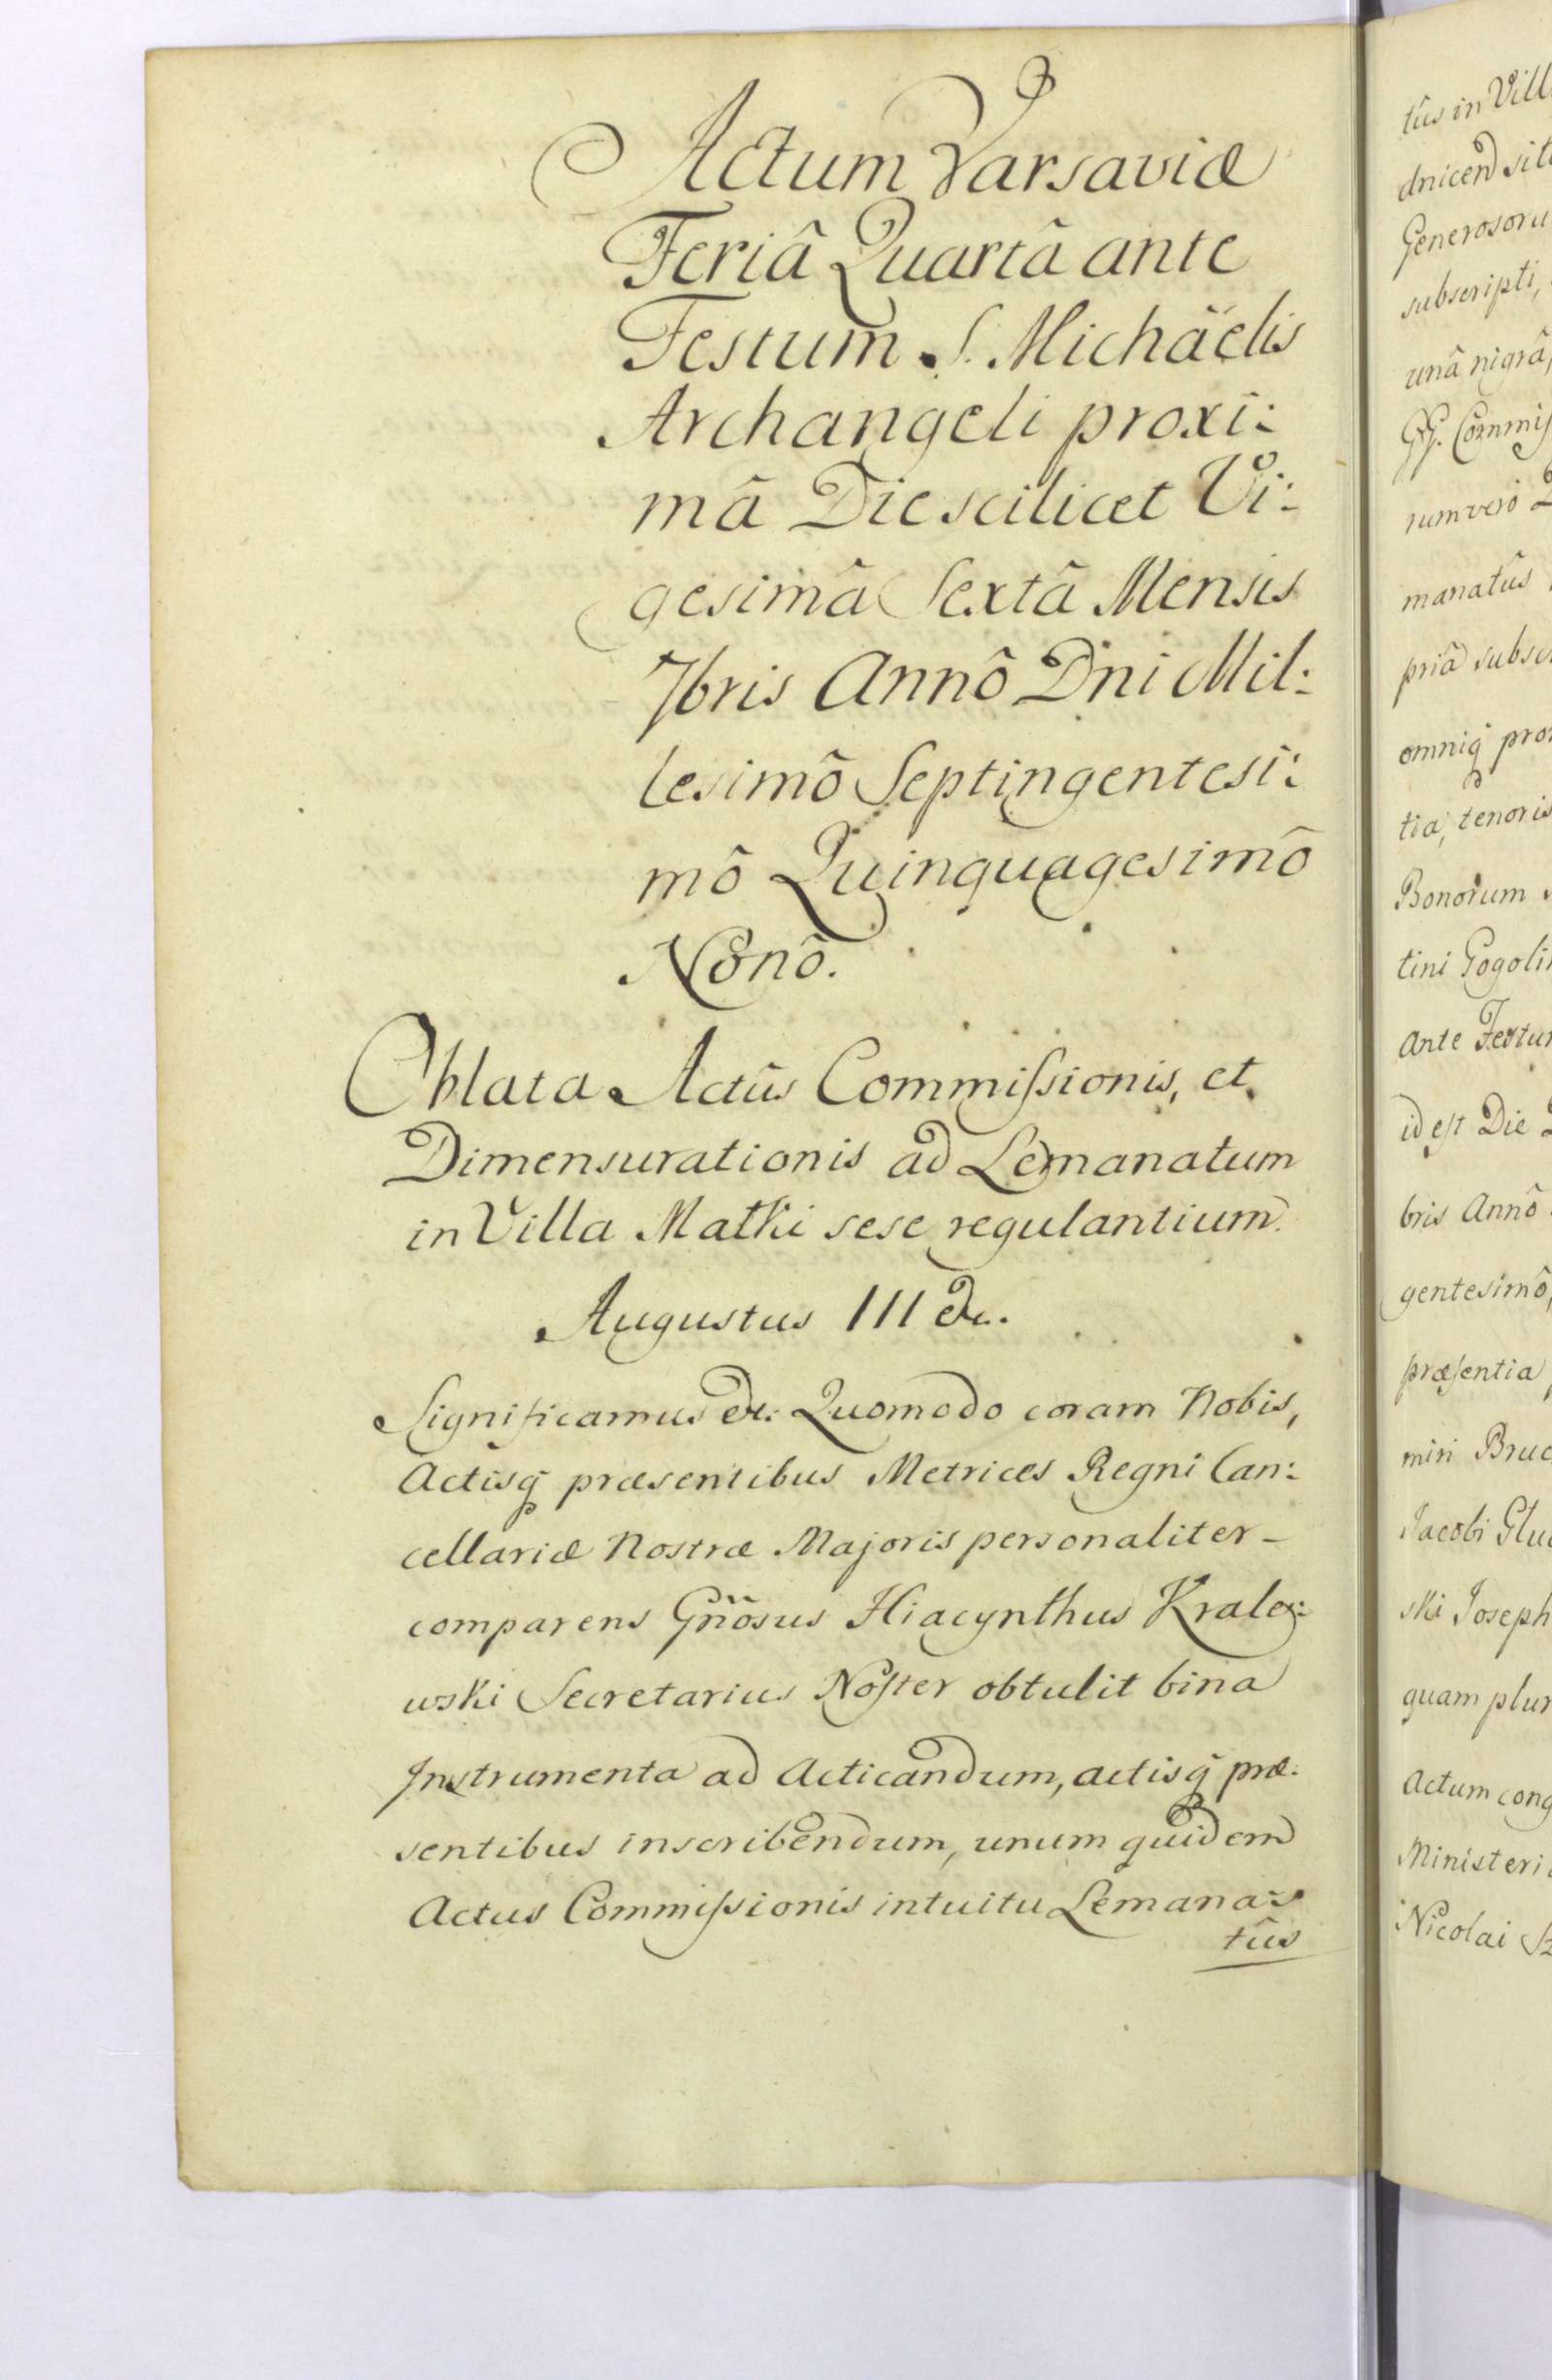 Actum Varsaviæ
Feriâ Quartâ ante
Festum S. Michäelis
Archangeli proxi:
mâ Die scilicet Vi:
gesimâ Sextâ Mensis
7bris Annô Dni Mil:
lesimô Septingentesi:
mô Quinquagesimô
Nonô.
Oblata Actûs Commiſsionis, et
Dimensurationis ad Lemanatum
in Villa Mathi sese regulantium.
Augustus III &c.
Significamus &c: Quomodo coram Nobis,
Actisq̃ præsentibus Metrices Regni Can:
cellariæ Nostræ Majoris personaliter –
comparens Gñosus Hiacynthus Krale:
wski Secretarius Noſter obtulit bina
Instrumenta ad Acticandum, actisq̃ præ:
sentibus inscribendum, unum quidem
Actus Commiſsionis intuitu Lemana:
tûs
tûs in Vill
dnicend sit
Generosoru
subscripti,
unâ nigrâ,
GG. Commiſ
rum verò
manatûs
priâ subsc
omniq̃ pro
tia, tenoris
Bonorum
tini Gogoli
Ante Festu
id eſt Die
bris Annô
gentesimô,
præſentia
miri Bruc
Jacobi Glu
ski Joseph
quam plur
Actum cong
Ministeri
Nicolai Sz